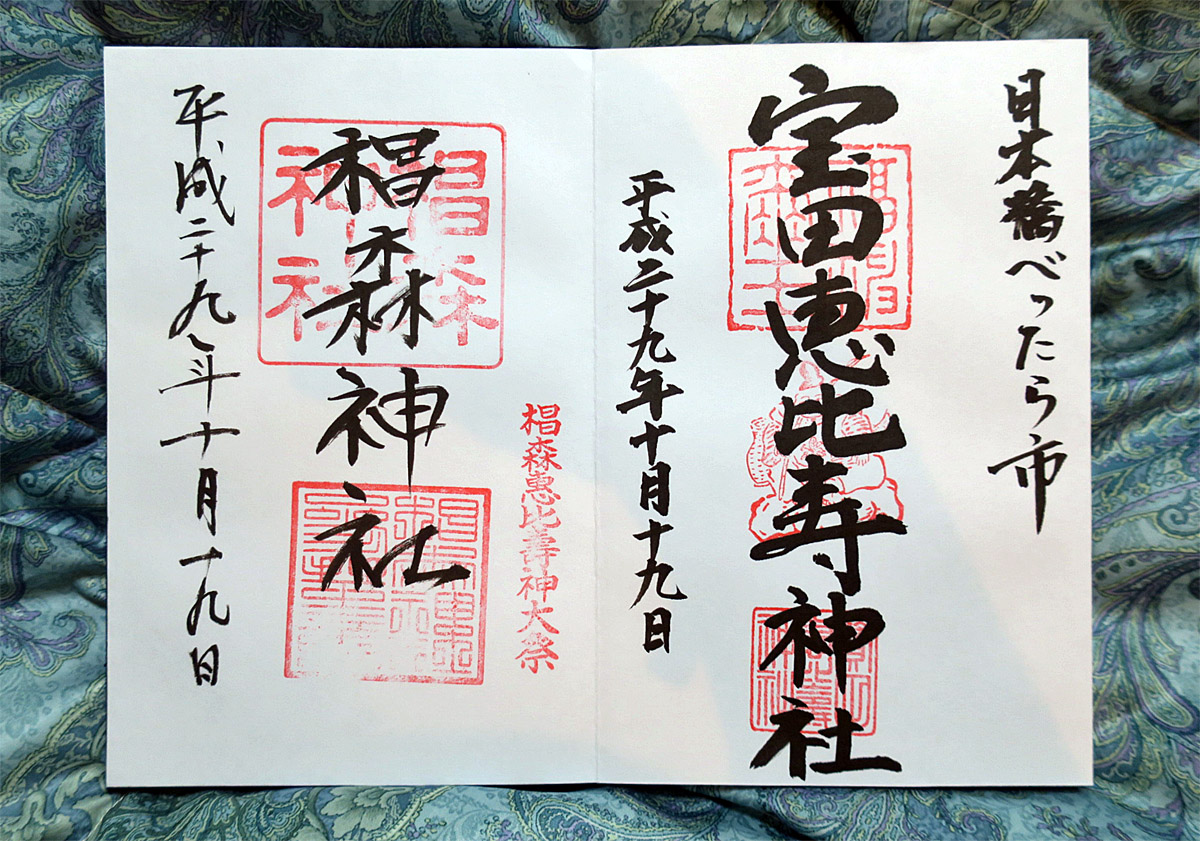 日本橋べったら市
宝田恵比寿神社
平成二十九年十月十九日
椙森恵比壽神大祭
椙森神社
椙森神社
平成二十九年十月十九日